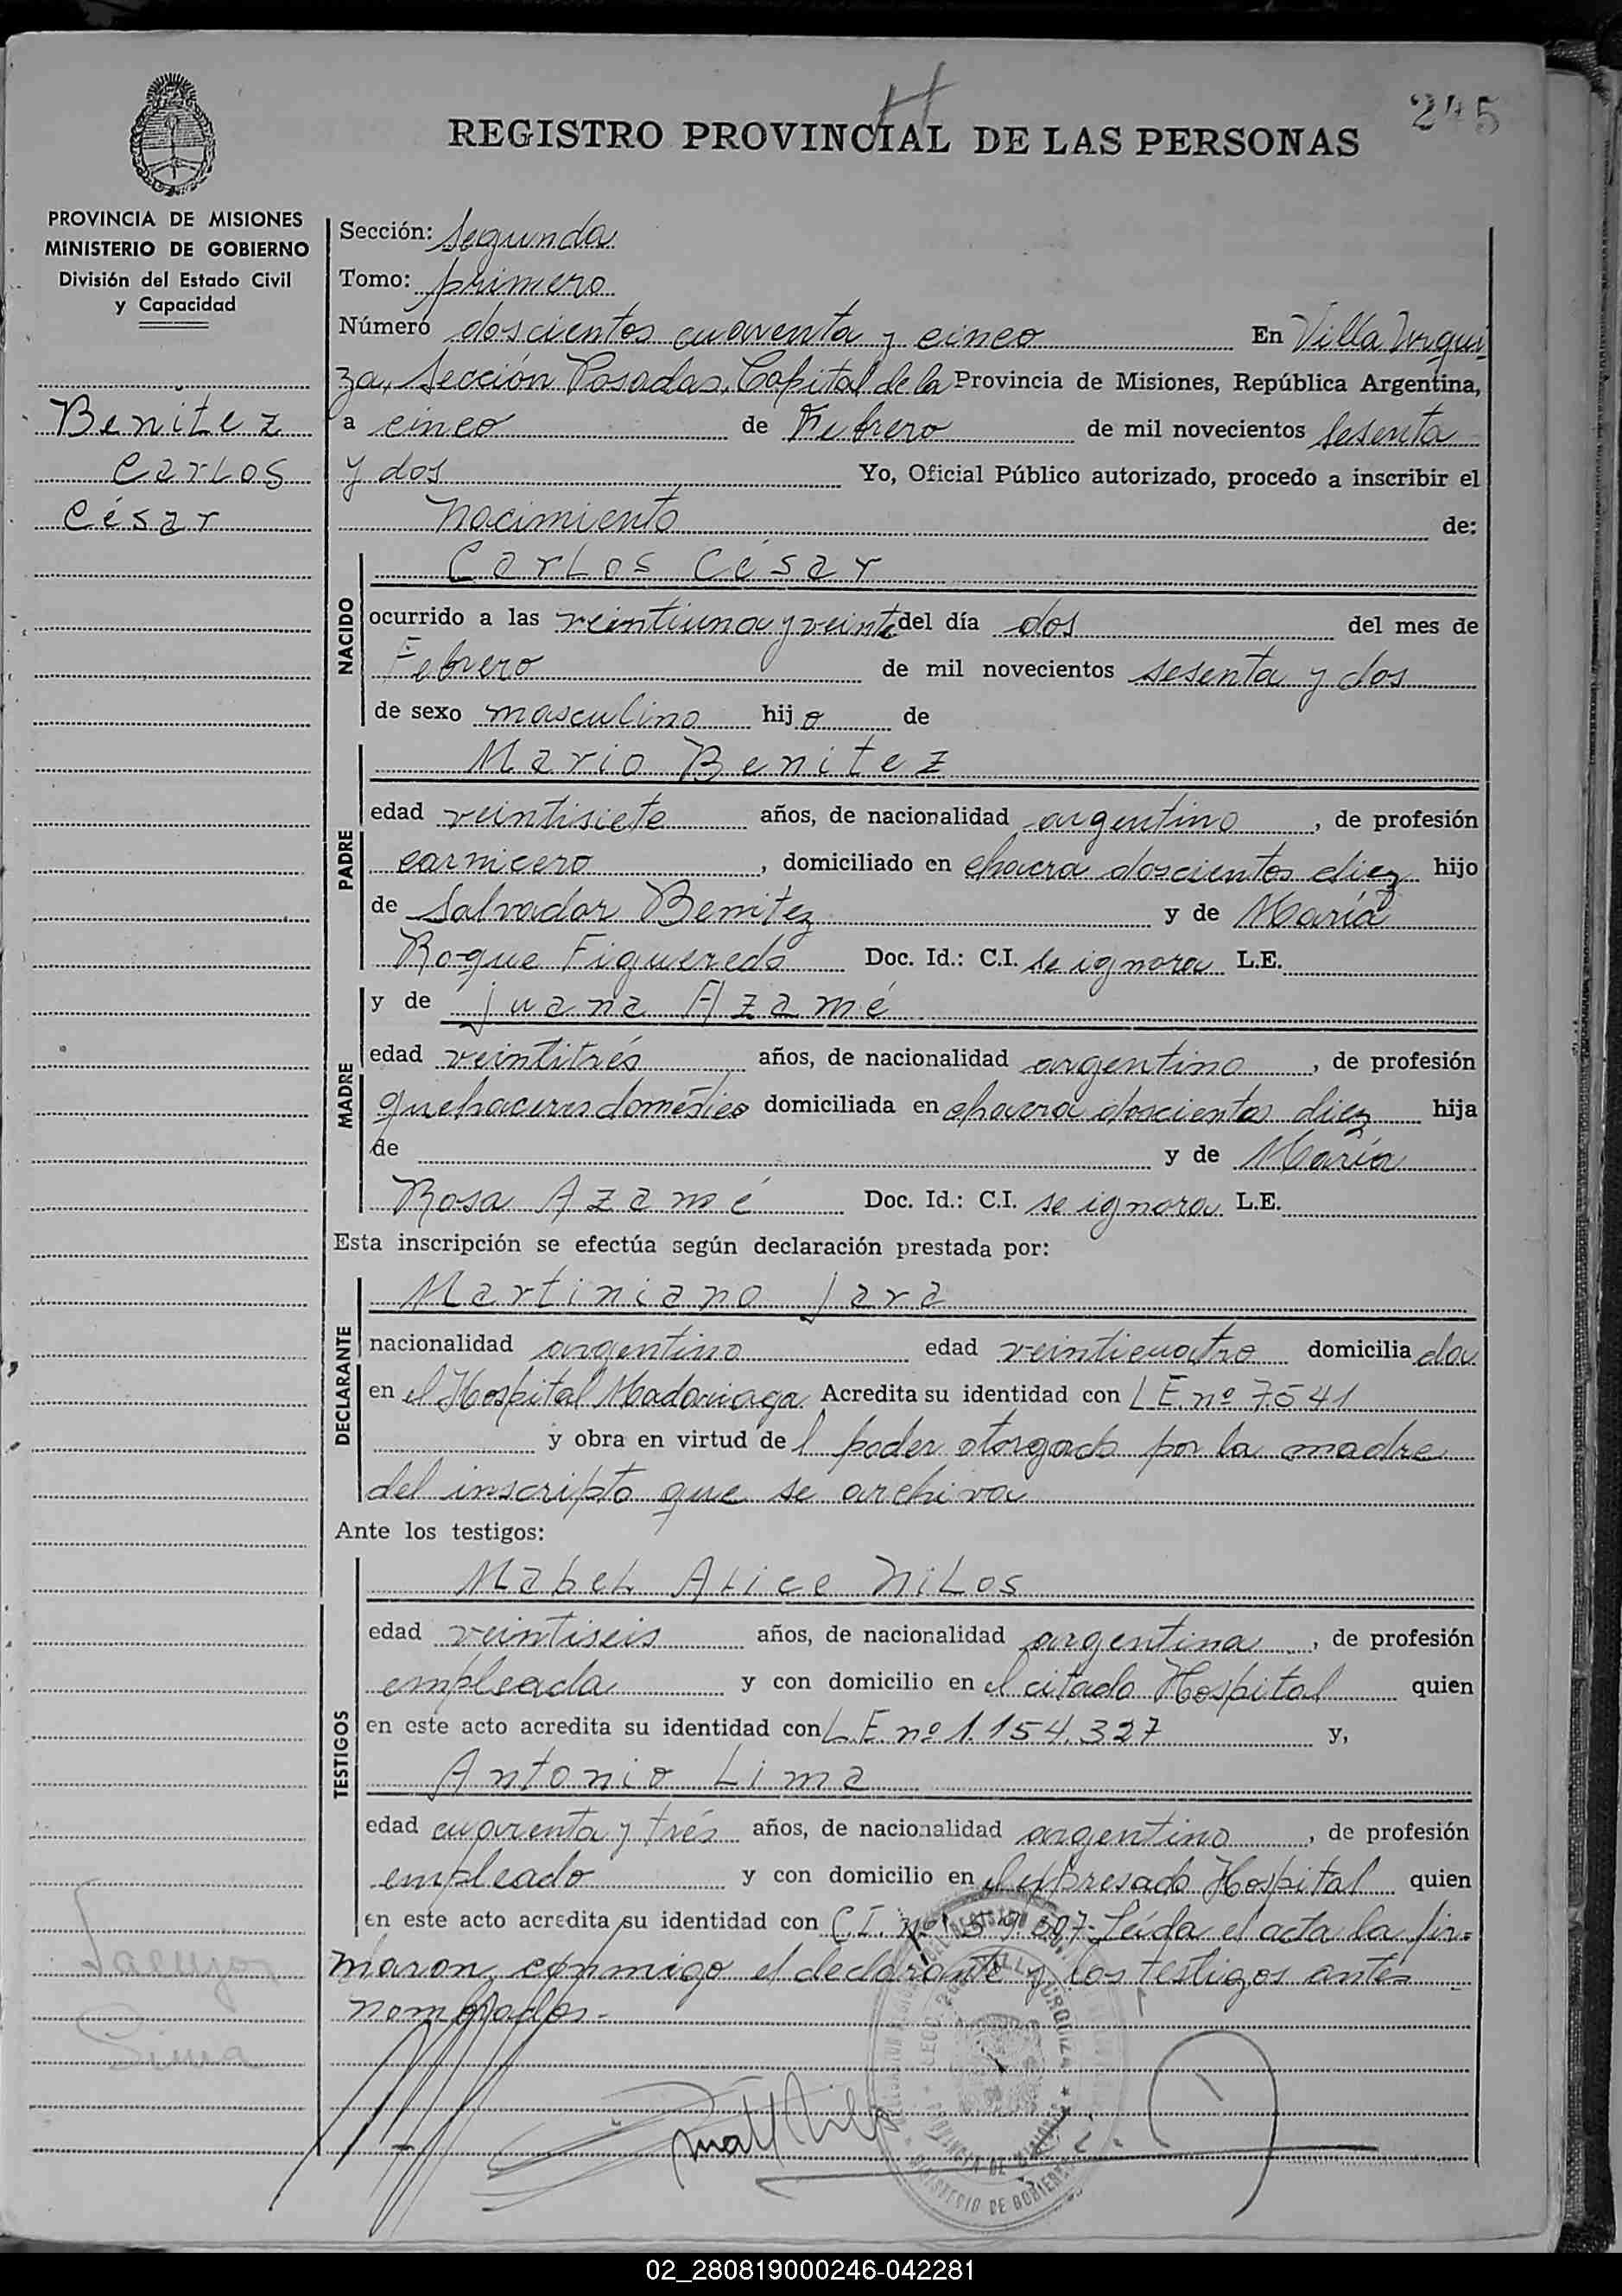 245
REGISTRO PROVINCIAL DE LAS PERSONAS
PROVINCIA DE MISIONES
MINISTERIO DE GOBIERNO
División del Estado Civil
y Capacidad
Benitez
Carlos
César
Sección: Segunda
Tomo: primero
Número doscientos cuarenta y cinco En Villa Urqui
za, Sección Posadas, Capital de la Provincia de Misiones, República Argentina,
a cinco de Febrero de mil novecientos sesenta
y dos Yo, Oficial Público autorizado, procedo a inscribir el
Nacimiento de:
NACIDO
Carlos César
ocurrido a las veintiuna y veinte del día dos del mes de
Febrero de mil novecientos sesenta y dos
de sexo masculino hijo de
PADRE
Mario Benitez
edad veintisiete años, de nacionalidad argentino, de profesión
carnicero, domiciliado en chacra doscientos diez hijo
de Salvador Benitez y de María
Roque Figueredo Doc. Id.: C.I. se ignora L.E.
MADRE
y de Juana Azamé
edad veintitrés años, de nacionalidad argentina, de profesión
quehaceres domésticos domiciliada en chacra doscientos diez hija
de y de María
Rosa Azamé Doc. Id.: C.I. se ignora L.E.
Esta inscripción se efectúa según declaración prestada por:
DECLARANTE
Martiniano Jara
nacionalidad argentino edad veinticuatro domicilia do
en el Hospital Madariaga Acredita su identidad con L.E. nº 7.541
y obra en virtud de l poder otorgado por la madre
del inscripto que se archiva
Ante los testigos:
TESTIGOS
Mabel Alice Nilos
edad veintiseis años, de nacionalidad argentina, de profesión
empleada y con domicilio en el citado Hospital quien
en este acto acredita su identidad con L.E. nº 1.154.327 y,
Antonio Lima
edad cuarenta y trés años, de nacionalidad argentino, de profesión
empleado y con domicilio en el expresado Hospital quien
en este acto acredita su identidad con C.I. nº Leída el acta la fir=
maron conmigo el declarante y los testigos ante=
nombrados.-
VILLA URQUIZA
PROVINCIA DE MISIONES
MINISTERIO DE GOBIERNO
02_280819000246-042281